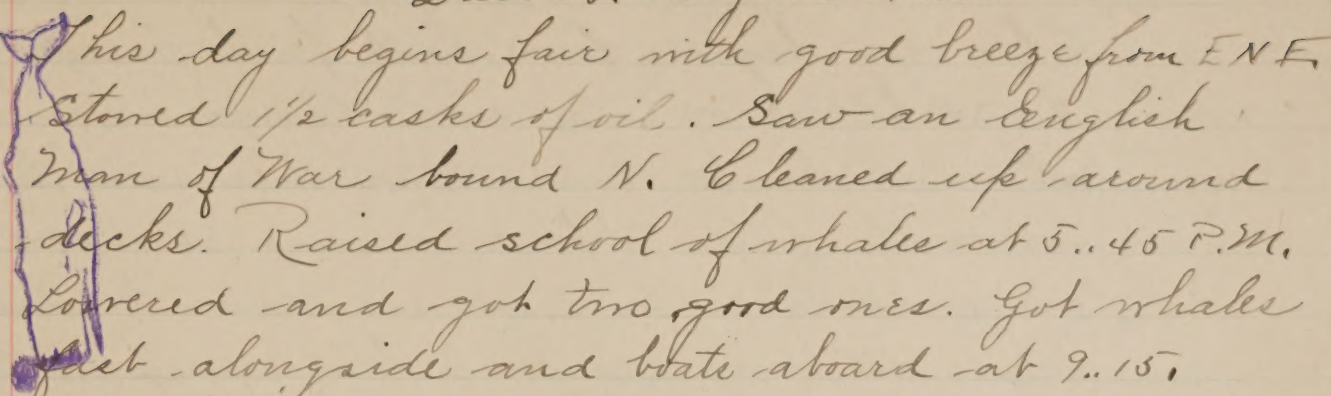 This day begins fair with good breeze from E N E.
Stowed 1 1/2 casks of oil. Saw an English
Man of War bound N. Cleaned up around
decks. Raised school of whales at 5..45 P.M.
Lowered and got two good ones. Got whales
fast alongside and boats aboard at 9..15.